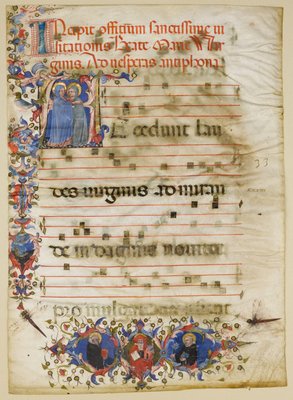 Incipit officium sanctissime ui
sitationis Beate Marie Vir
ginis. Ad uesperas antiphona
Accedunt lau
33
des uirginis admiran
de indaginis nouiter